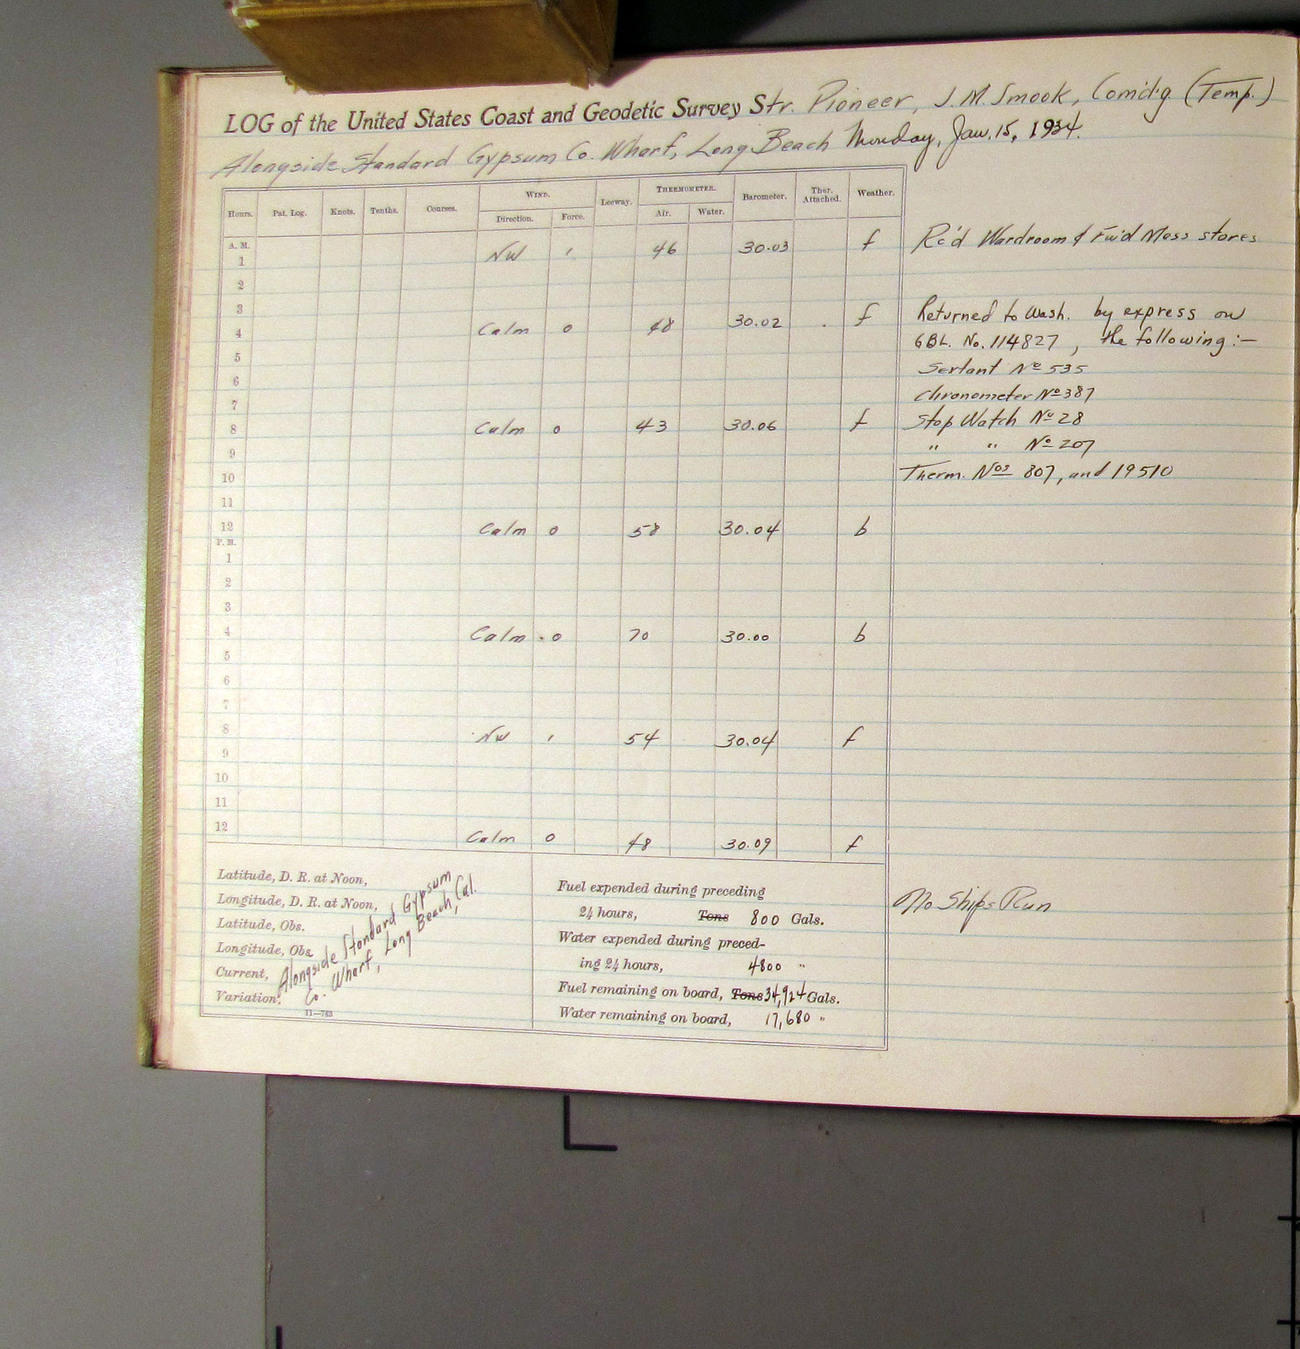 LOG of the United States Coast and Geodetic Survey Str. Pioneer, J. M. Smook, Comd'g (Temp.)
Alongside Standard Gypsum Co. Wharf, Long Beach Monday, Jan. 15, 1934.
Hours. Pat. Log. Knots. Tenths. Courses. WIND. Direction. Force. Leeway. THERMOMETER. Air. Water. Barometer. Ther. Attached. Weather.
A. M.
1 NW 1 46 30.03 f Rc'd Wardroom & Fw'd Mess stores
2
3
4 Calm 0 48 30.02 f Returned to Wash. by express on
GBL. No. 114827, the following:—
5 Sextant No 535
6 Chronometer No 387
7
8 Calm 0 43 30.06 f Stop Watch No 28
9 " " No 207
10 Therm. Nos 807, and 19510
11
12 Calm 0 58 30.04 b
P. M.
1
2
3
4 Calm . 0 70 30.00 b
5
6
7
8 NW 1 54 30.04 f
9
10
11
12 Calm 0 48 30.09 f
Latitude, D. R. at Noon,
Longitude, D. R. at Noon,
Latitude, Obs.
Longitude, Obs.
Current,
Variation.
Alongside Standard Gypsum
Co. Wharf, Long Beach, Cal.
11—763
Fuel expended during preceding
24 hours, Tons 800 Gals.
Water expended during preced-
ing 24 hours, 4800 "
Fuel remaining on board, Tons 34,924 Gals.
Water remaining on board, 17,680 "
No Ships Run